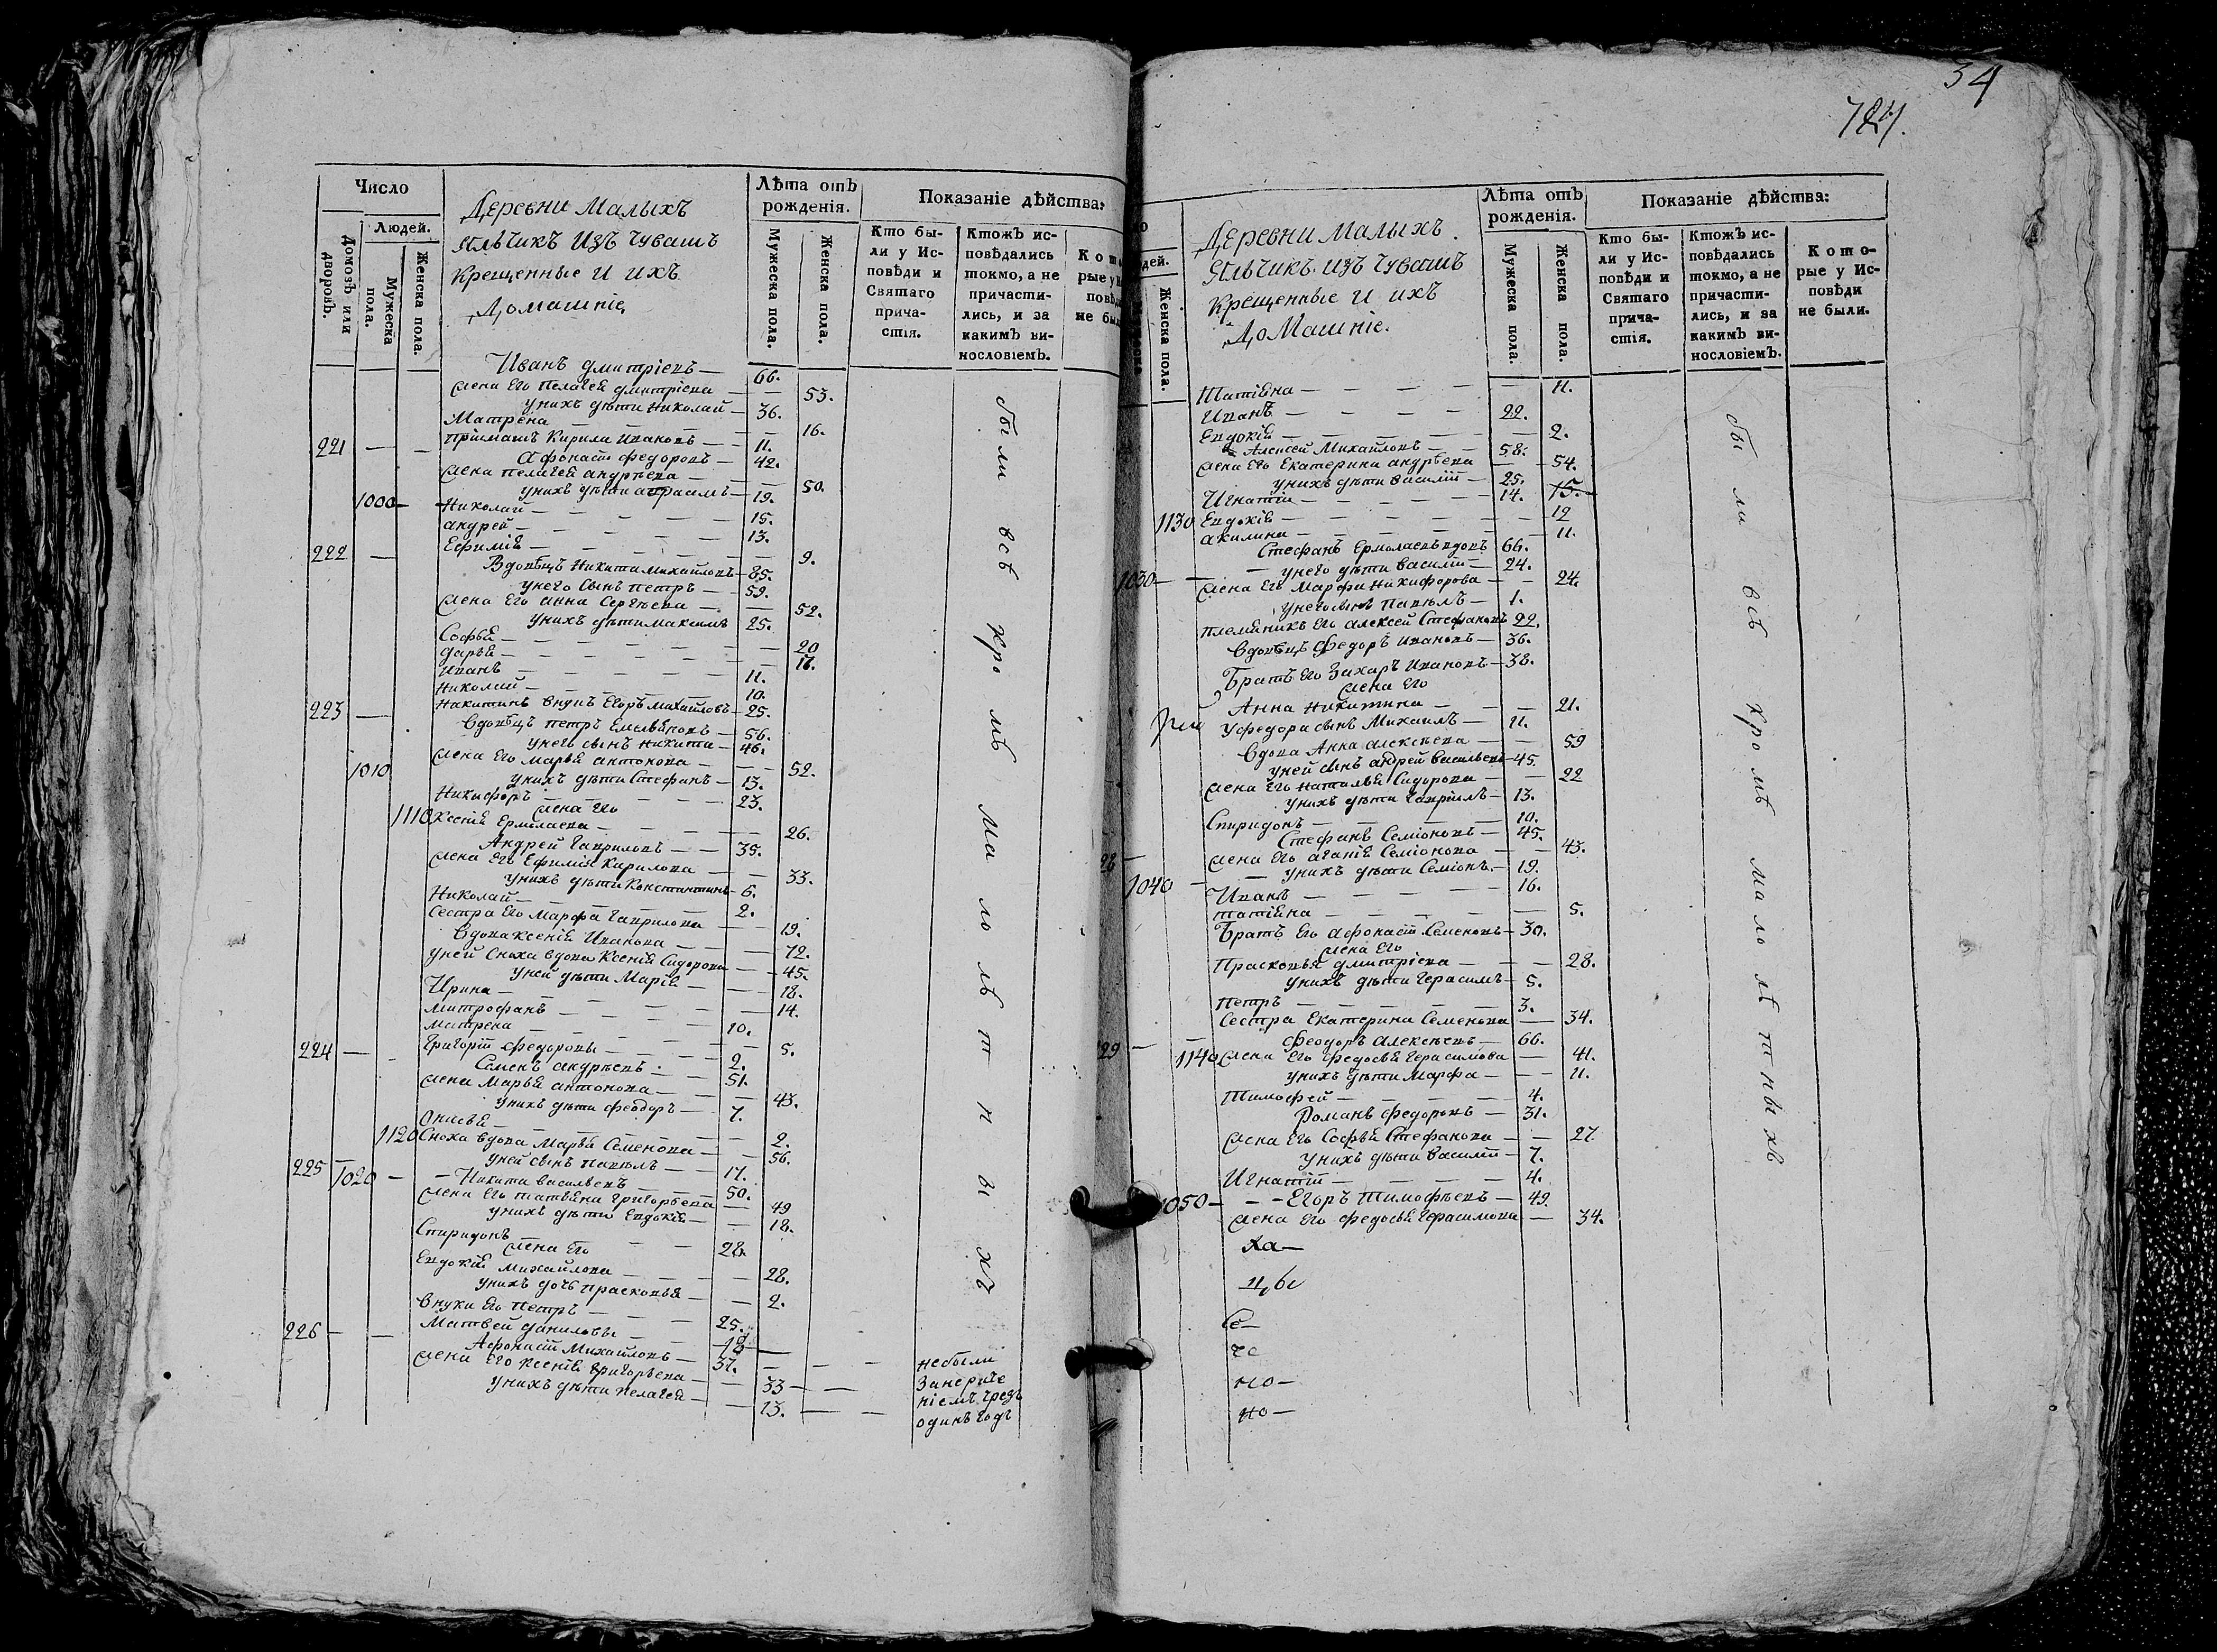 34
724.
Число
Людей.
Домовъ или дворовъ.
Мужеска пола.
Женска пола.
Деревни Малыхъ
Яльчикъ изъ чувашъ
крещенные и ихъ
Домашніе
Лѣта отъ рожденія.
Мужеска пола.
Женска пола.
Показаніе дѣйства:
Кто бы-
ли у Ис-
повѣди и
Святаго
прича-
стія.
Ктожъ ис-
повѣдались
токмо, а не
причасти-
лись, и за
какимъ ви-
нословіемъ.
Кото
рые у И
повѣд
не был
Иванъ дмитріевъ — 66.
жена Его пелагея дмитріева — 53.
унихъ дѣти Николай — 36.
Матрена — 16.
221 — пріимашъ Кирила Ивановъ — 11.
Афонасій федоровъ — 42.
жена пелагея андрѣева — 50.
унихъ дѣти — 19.
1000 — Николай — 15.
андрей — 13.
Ефимія — 9.
222 — Вдовецъ Никита михайловъ — 85.
унего сынъ петръ — 59.
жена Его анна Сергѣева — 52.
унихъ дѣти максимъ 25.
Софья — 20
дарья — 17.
Иванъ — 11.
Николай — 10.
223 — Никитинъ внукъ Егоръ михайловъ — 25.
вдовецъ петръ Емельяновъ — 56.
унего сынъ никита — 46.
жена Его марья антонова — 52.
1010 унихъ дѣти Стефанъ — 13.
Никифоръ — 23.
жена Его
1110 Ксенія Ермолаева — 26.
Андрей гавриловъ — 35.
жена Его Ефимія Карилова — 33.
унихъ дѣти Константинъ — 6.
Николай — 2.
Сестра Его марфа гаврилова — 19.
вдова ксенія Иванова — 72.
уней Сноха вдова Ксенія Сидорова — 45.
уней дѣти Марія — 18.
Ирина — 14.
митрофанъ — 10.
матрена — 5.
224 — григорій федоровы — 2.
Семенъ андрѣевъ — 51.
жена Марья антонова — 43.
унихъ дѣти феодоръ — 7.
Онисья — 2.
1120 Сноха вдова Марья Семенова — 56.
уней сынъ павѣлъ — 17.
225 1020 — Никита васильевъ — 50.
жена Его татьяна григорьева — 49
унихъ дѣти Евдокія — 18.
Спиридонъ — 28.
жена Его
Евдокія михайлова — 28.
унихъ дочь прасковья — 2.
внуки Его петръ — 25.
Матвей даниловы — 18
226 — Афонасій Михайловъ — 37.
жена Его ксенія григорьева — 33
унихъ дѣти пелагея — 13.
были всѣ кромѣ малолѣтныхъ
небыли
одинъ годъ
дей.
Женска пола.
Деревни Малыхъ
Яльчикъ изъ чувашъ
крещенные и ихъ
Домашніе.
Лѣта отъ рожденія.
Мужеска пола.
Женска пола.
Показаніе дѣйства:
Кто бы-
ли у Ис-
повѣди и
Святаго
прича-
стія.
Ктожъ ис-
повѣдались
токмо, а не
причасти-
лись, и за
какимъ ви-
нословіемъ.
Кото-
рые у Ис-
повѣди
не были.
Татіяна — 11.
Иванъ — 22.
Евдокія — 2.
Алексей Михайловъ — 58.
жена Его Екатерина андрѣева — 54.
унихъ дѣти василій — 25.
Игнатій — 14. 15.
1130 Евдокія — 12
акилина — 11.
Стефанъ Ермолаевъ вдовъ 66.
унего дѣти василій — 24.
1030 — жена Его Марфа никифорова — 24.
унего сынъ павѣлъ — 1.
племяникъ Его алексей Стефановъ 22.
вдовецъ федоръ Ивановъ — 36.
Братъ Его Захаръ Ивановъ — 38.
жена Его
Анна Никитина — 21.
Уфедора сынъ Михаилъ — 11.
вдова Анна алексѣева — 59
уней сынъ андрей васильевъ — 45.
жена Его наталья Сидорова — 22
унихъ дѣти гавріилъ — 13.
Спиридонъ — 10.
Стефанъ Семіоновъ — 45.
28 — жена Его агафія Семіонова — 43.
унихъ дѣти Семіонъ — 19.
1040 — Иванъ — 16.
татіяна — 5.
Братъ Его афонасій Семеновъ — 30.
жена Его
Прасковья дмитріева — 28.
унихъ дѣти герасимъ — 5.
петръ — 3.
Сестра Екатерина Семенова — 34.
феодоръ алексѣевъ — 66.
29 — 1140 жена Его федосья герасимова — 41.
унихъ дѣти Марфа — 11.
Тимофей — 4.
Романъ федоровъ — 31.
жена Его Софья Стефанова — 27
унихъ дѣти василій — 7.
Игнатій — 4.
1050 — Егоръ Тимофѣевъ — 49.
жена Его федосья герасимова — 34.
были всѣ кромѣ малолѣтныхъ